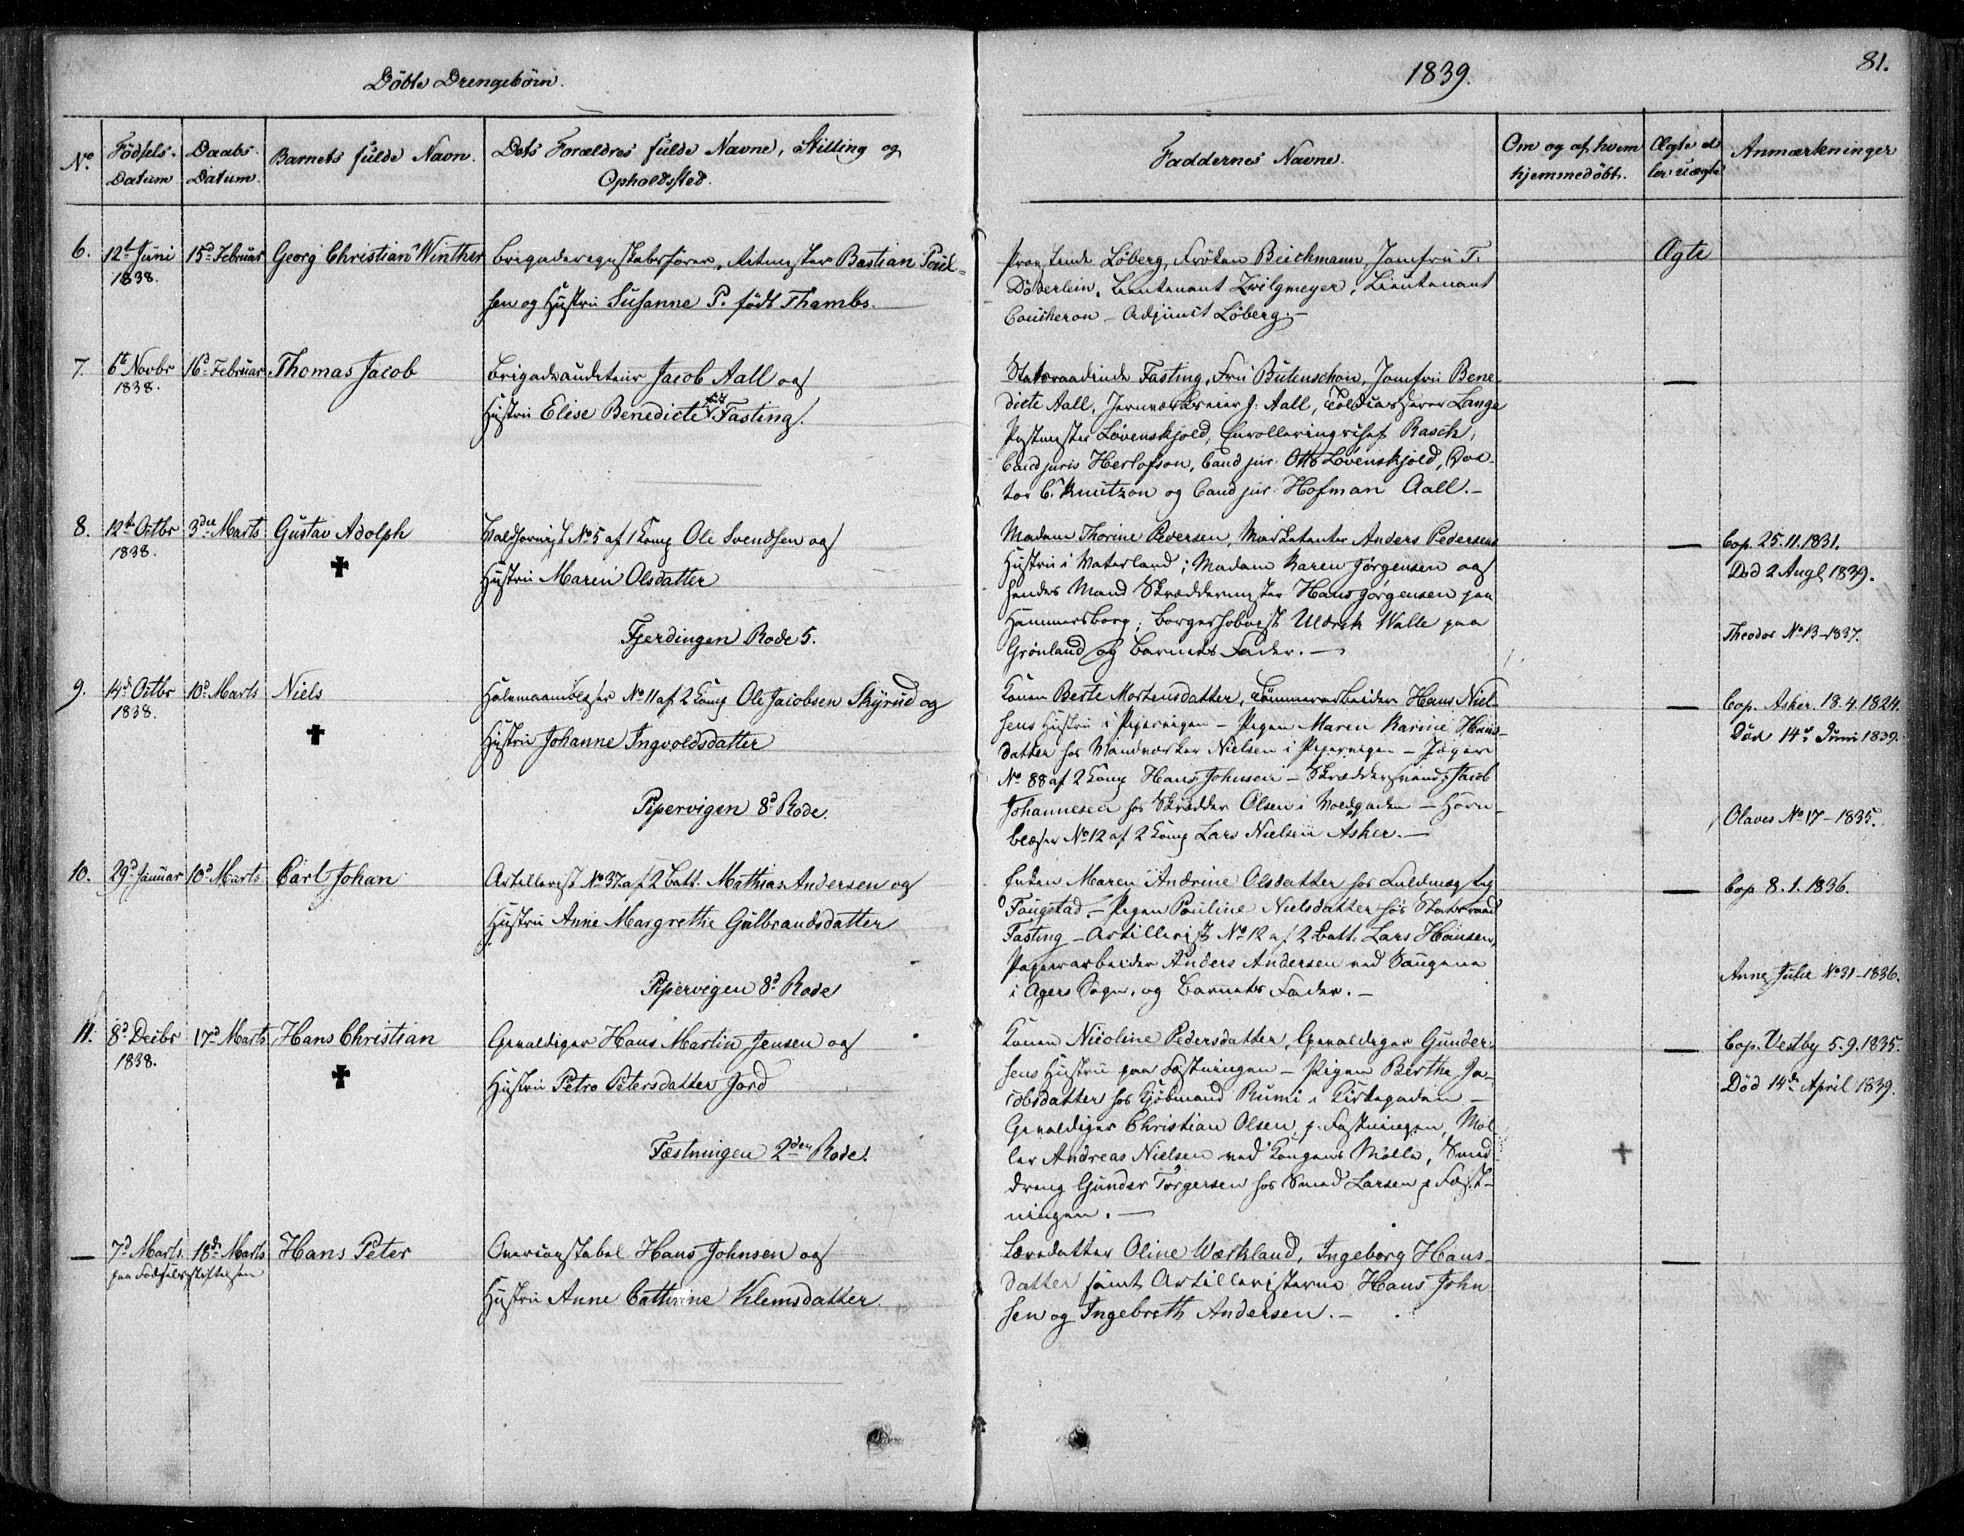 Döbte Drengebörn.
1839.
81.
No.
Födsels-
Datum
Daabs-
Datum.
Barnets fulde Navn.
Dets Forældres fulde Navne, Stilling og
Opholdssted.
Faddernes Navne.
Om og af hvem
hjemmedöbt.
Ægte el
ler uægte
Anmærkninger
6.
12te Juni
1838.
15d Februar
Georg Christian Winther
Brigaderegnskabsfører, Ritmester Bastian Poul-
sen og Hustru Susanne P. födt Thambs.
Provstinde Löberg, Fröken Beichmann, Jomfru T.
Döderlein, Lieutenant Zwilgmeyer, Lieutenant
Coucheron – Adjunct Löberg. –
Ægte
7.
6te Novbr
1838.
16d Februar
Thomas Jacob
Brigadeauditeur Jacob Aall og
Hustru Elise Benedicte födt Fasting.
Statsraadinde Fasting, Fru Butenschon, Jomfru Bene-
dicte Aall, Jernværkseier J. Aall, Toldcasserer Lange
Postmester Lövenskjold, Enrolleringschef Rasch,
Cand juris Herlofson, Cand jur. Otto Lövenskjold, Doc-
tor C. Knutzon og Cand jur. Hofman Aall. –
—
8.
12te Octbr
1838.
3die Marts
Gustav Adolph
✝
Waldhornist No 5 af 1 Komp Ole Svendsen og
Hustru Maren Olsdatter
Fjerdingen Rode 5.
Madam Thorine Eversen, Marketenter Anders Pedersens
Hustru i Vaterland; Madam Karen Jörgensen og
hendes Mand Skræddermester Hans Jörgensen paa
Hammersborg; Borgerhoboist Uldrik Walle paa
Grönland og Barnets Fader. –
—
Cop. 25.11.1831.
Död 2 Augt 1839.
Theodor No 13-1837.
9.
14d Octbr
1838.
10d Marts
Niels
✝
Halvmaanblæser No 11 af 2 Komp Ole Jacobsen Skyrud og
Hustru Johanne Ingvoldsdatter
Pipervigen 8d Rode.
Konen Berte Mortensdatter, Tömmerarbeider Hans Niel-
sens Hustru i Pipervigen – Pigen Maren Karine Hans-
datter hos Nielsen i Pipervigen – Jæger
No 88 af 2 Komp Hans Johnsen – Skræddersvend Jacob
Johannesen hos Skrædder Olsen i Voldgaden – Horn-
blæser No 12 af 2 Komp Lars Nielsen Asker. –
—
Cop. Asker 18.4.1824.
Död 14d Juni 1839.
Olaves No 17-1835.
10.
29d Januar
10d Marts
Carl Johan
Artillerist No 37 af 2 Batt. Mathias Andersen og
Hustru Anne Margrethe Gulbrandsdatter
Pipervigen 8d Rode
Enken Maren Andrine Olsdatter hos Fuldmægtig
Fougstad – Pigen Pouline Nielsdatter hos Statsraad
Fasting – Artillerist No 12 af 2 Batt. Lars Hansen,
Papirarbeider Anders Andersen ved Saugene
i Agers Sogn, og Barnets Fader. –
—
Cop 8.1.1836.
Anne Julie No 31-1836.
11.
8d Decbr
1838.
17d Marts
Hans Christian
✝
Gevaldiger Hans Martin Jensen og
Hustru Petro Petersdatter Jord
Fæstningen 2den Rode.
Konen Nicoline Pedersdatter, Gevaldiger Gunder-
sens Hustru paa Fæstningen – Pigen Berthe Ja-
cobsdatter hos Kjöbmand Rumi i Kirkegaden –
Gevaldiger Christian Olsen, p. Fæstningen, Möl-
ler Andreas Nielsen ved Kongens Mölle, Smed-
dreng Gunder Torgersen hos Smed Larsen p Fæst-
ningen. –
—
Cop. Vestby 5.9.1835.
Död 14de April 1839.
—
7d Marts
paa Födselsstiftelsen
18de Marts
Hans Peter
Overconstabel Hans Johnsen og
Hustru Anne Cathrine Klemsdatter.
Læredatter Oline Wærkland, Ingeborg Hans-
datter samt Artilleristerne Hans John
sen og Ingebreth Andersen. –
—